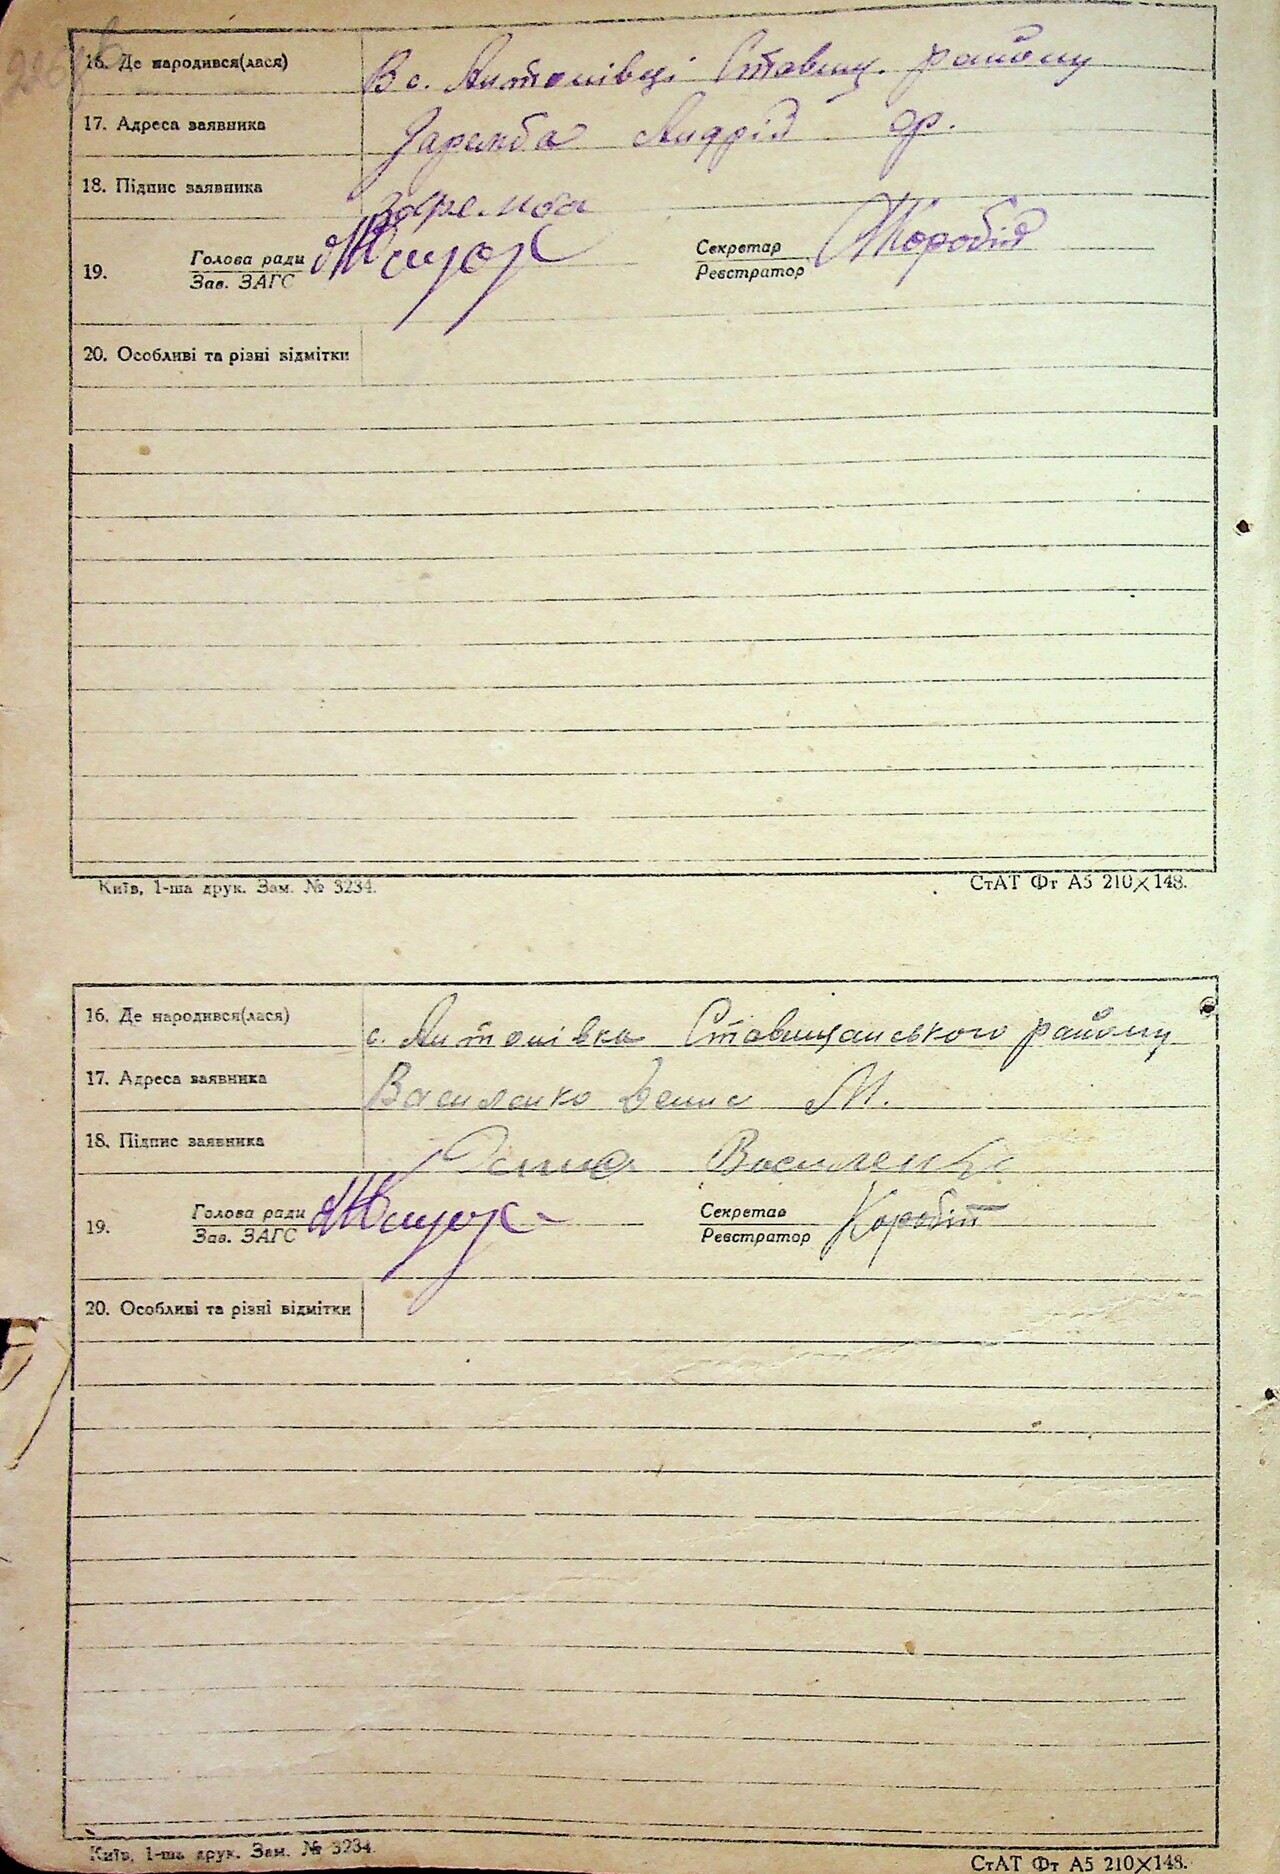 16. Де народився(лася) В с. Антонівці Ставищ. району
17. Адреса заявника Заремба Андрій Ф.
18. Підпис заявника Заремба
19. Голова ради Секретар Коробій
Зав. ЗАГС Реєстратор
20. Особливі та різні відмітки
Київ, 1-ша друк. Зам. № 3234. СтАТ Фт А5 210×148.
16. Де народився(лася) с. Антонівка Ставищанського району
17. Адреса заявника Василенко Денис М.
18. Підпис заявника Василенко
19. Голова ради Секретар Коробій
Зав. ЗАГС Реєстратор
20. Особливі та різні відмітки
Київ, 1-ша друк. Зам. № 3234. СтАТ Фт А5 210×148.